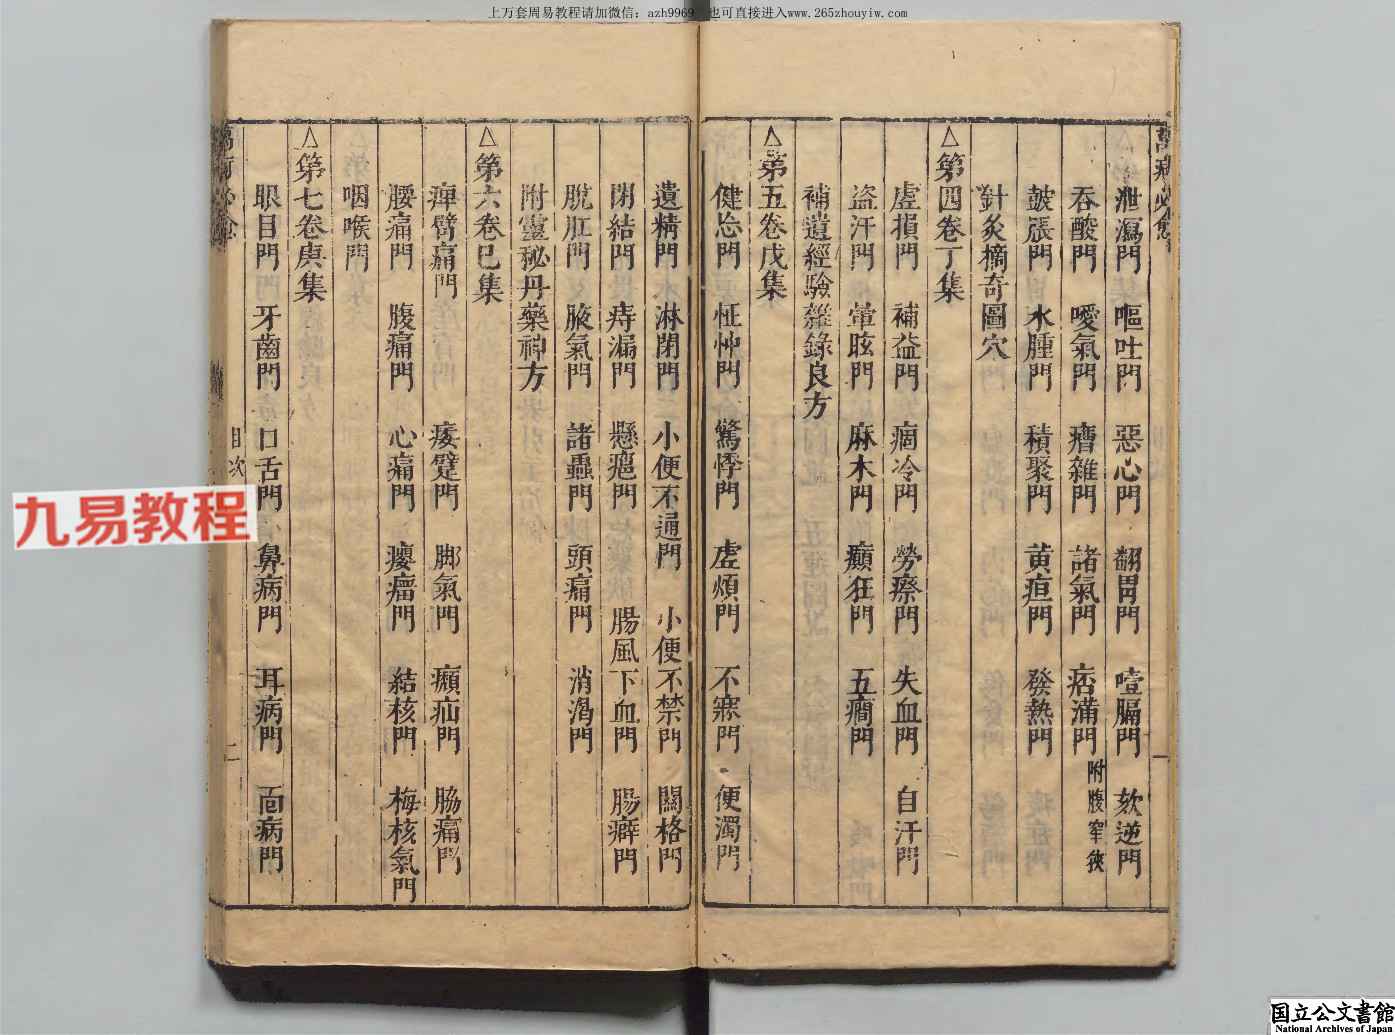 上万套周易教程请加微信：azh9969 也可直接进入www.265zhouyiw.com
泄瀉門 嘔吐門 惡心門 翻胃門 噎膈門 欬逆門
吞酸門 噯氣門 嘈雜門 諸氣門 痞滿門 附腹窄狹
皷脹門 水腫門 積聚門 黄疸門 發熱門
針灸摘奇圖穴
△第四卷丁集
虚損門 補益門 痼冷門 勞瘵門 失血門 自汗門
盗汗門 暈眩門 麻木門 癲狂門 五癇門
補遺經驗雜錄良方
△第五卷戊集
健忘門 怔忡門 驚悸門 虚煩門 不寐門 便濁門
遺精門 淋閉門 小便不通門 小便不禁門 關格門
閉結門 痔漏門 懸癰門 腸風下血門 腸癖門
脫肛門 腋氣門 諸蟲門 頭痛門 消渴門
附靈秘丹藥神方
△第六卷巳集
痺臂痛門 痿躄門 脚氣門 㿗疝門 脇痛門
腰痛門 腹痛門 心痛門 癭瘤門 結核門 梅核氣門
咽喉門
△第七卷庚集
眼目門 牙齒門 口舌門 鼻病門 耳病門 面病門
目次
二
九易教程
国立公文書館
National Archives of Japan